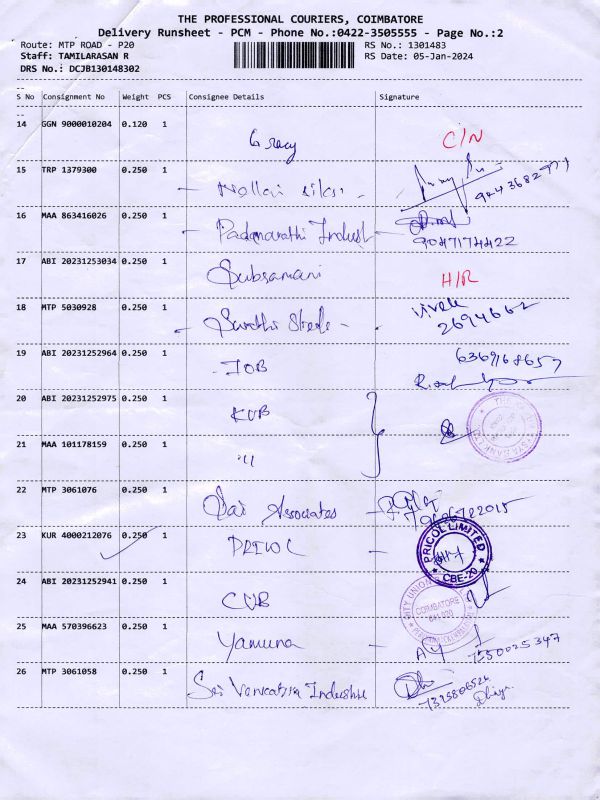 THE PROFESSIONAL COURIERS, COIMBATORE
Delivery Runsheet - PCM - Phone No.:0422-3505555 - Page No.:2
Route: MTP ROAD - P20 RS No.: 1301483
Staff: TAMILARASAN R RS Date: 05-Jan-2024
DRS No.: DCJB130148302
S No Consignment No Weight PCS Consignee Details Signature
14 GGN 9000010204 0.120 1 C/N
15 TRP 1379300 0.250 1
16 MAA 863416026 0.250 1 Padmavathi Indust
9047174422
17 ABI 20231253034 0.250 1 Subramani H/R
18 MTP 5030928 0.250 1 2694662
19 ABI 20231252964 0.250 1 IOB 6369168657
20 ABI 20231252975 0.250 1 KVB
21 MAA 101178159 0.250 1 "
22 MTP 3061076 0.250 1 Sai Associates
23 KUR 4000212076 0.250 1 PRICOL PRICOL LIMITED CBE-20
24 ABI 20231252941 0.250 1 CUB CITY UNION COIMBATORE 641 020
25 MAA 570396623 0.250 1 Yamuna 7550025347
26 MTP 3061058 0.250 1 Sri Venkatesa Industries